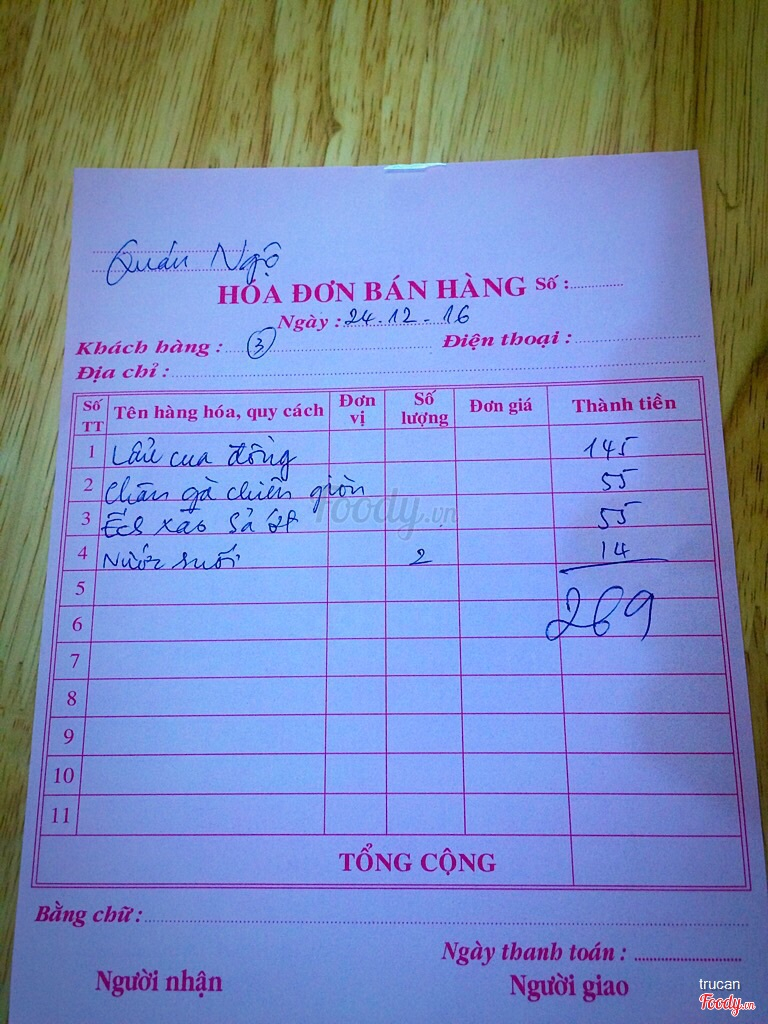 Quán Ngộ
HÓA ĐƠN BÁN HÀNG Số :
Ngày : 24.12.16
Khách hàng : 3 Điện thoại :
Địa chỉ :
Số TT Tên hàng hóa, quy cách Đơn vị Số lượng Đơn giá Thành tiền
1 Lẩu cua đồng 145
2 Chân gà chiên giòn 55
3 Ếch xào sả ớt 55
4 Nước suối 2 14
5
269
6
7
8
9
10
11
TỔNG CỘNG
Bằng chữ :
Ngày thanh toán :
Người nhận Người giao
foody.vn
trucan
Foody.vn